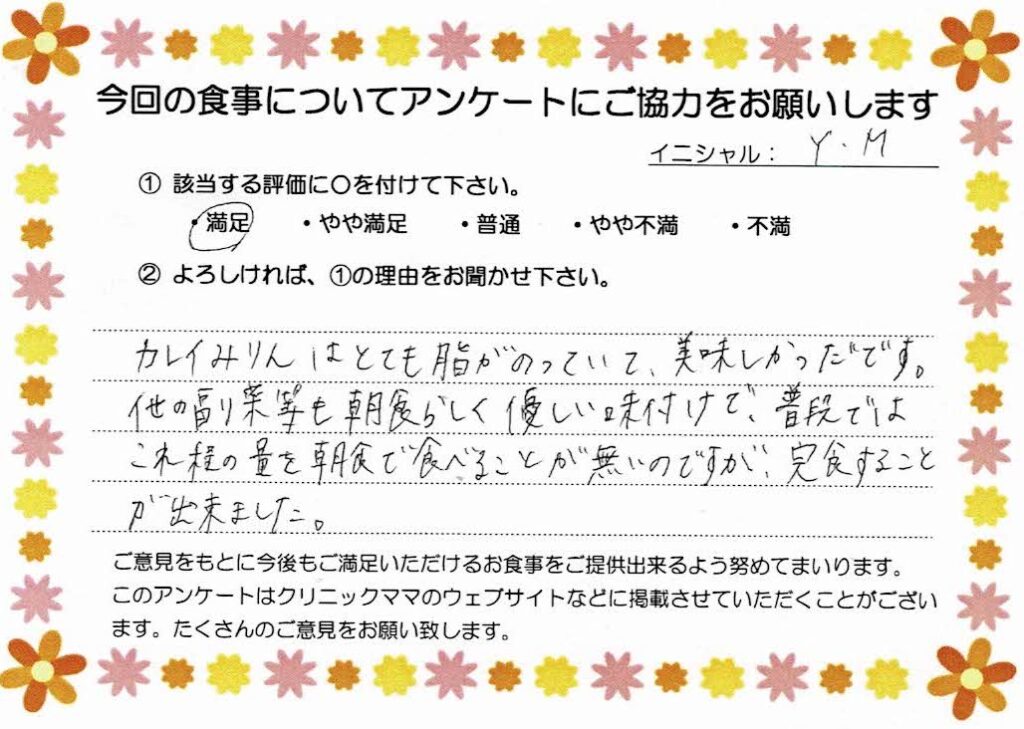 今回の食事についてアンケートにご協力をお願いします
イニシャル： Y.M
① 該当する評価に〇を付けて下さい。
・満足 ・やや満足 ・普通 ・やや不満 ・不満
② よろしければ、①の理由をお聞かせ下さい。
カレイみりんはとても脂がのっていて、美味しかっだです。
他の副菜等も朝食らしく優しい味付けで、普段では
これ程の量を朝食で食べることが無いのですが、完食すること
が出来ました。
ご意見をもとに今後もご満足いただけるお食事をご提供出来るよう努めてまいります。
このアンケートはクリニックママのウェブサイトなどに掲載させていただくことがござい
ます。たくさんのご意見をお願い致します。